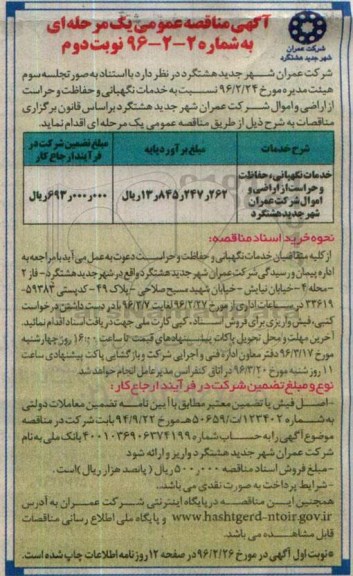 آگهی مناقصه عمومی یک مرحله‌ای
به شماره ۲-۲-۹۶ نوبت دوم
شرکت عمران
شهر جدید هشتگرد
شرکت عمران شهر جدید هشتگرد در نظر دارد با استناد به صورتجلسه سوم
هیئت مدیره مورخ ۹۶/۲/۲۴ نسبت به خدمات نگهبانی و حفاظت و حراست
از اراضی و اموال شرکت عمران شهر جدید هشتگرد براساس قانون برگزاری
مناقصات به شرح ذیل از طریق مناقصه عمومی یک مرحله ای اقدام نماید.
شرح خدمات
مبلغ برآورد پایه
مبلغ تضمین شرکت در
فرآیند ارجاع کار
خدمات نگهبانی، حفاظت
و حراست از اراضی و
اموال شرکت عمران
شهر جدید هشتگرد
۱۳٫۸۴۵٫۲۴۷٫۲۶۲ ریال
۶۹۳٫۰۰۰٫۰۰۰ ریال
نحوه خرید اسناد مناقصه:
از کلیه متقاضیان خدمات نگهبانی و حفاظت و حراست دعوت به عمل می آید با مراجعه به
اداره پیمان و رسیدگی شرکت عمران شهر جدید هشتگرد واقع در شهر جدید هشتگرد - فاز ۲
- محله ۴ - خیابان نیایش - خیابان شهید مسیح صلاحی - پلاک ۴۹ - کدپستی ۵۹۳۸۳
۳۳۶۱۹ در ساعات اداری از مورخ ۹۶/۲/۲۷ لغایت ۹۶/۳/۷ با در دست داشتن درخواست
کتبی، فیش واریزی برای فروش اسناد، کپی کارت ملی جهت دریافت اسناد اقدام نمایند.
آخرین مهلت و محل تحویل پاکات پیشنهادهای قیمت تا ساعت ۱۶:۰۰ روز چهارشنبه
مورخ ۹۶/۳/۱۷ دفتر معاون اداره فنی و اجرایی شرکت و بازگشایی پاکت پیشنهادی ساعت
۱۱ روز شنبه مورخ ۹۶/۳/۲۰ اتاق کنفرانس مدیرعامل انجام خواهد شد.
نوع و مبلغ تضمین شرکت در فرآیند ارجاع کار:
- اصل فیش یا تضمین معتبر مطابق با آیین نامه تضمین معاملات دولتی
به شماره ۱۲۳۴۰۲/ت۵۰۶۵۹هـ مورخ ۹۴/۹/۲۲ بابت شرکت در مناقصه
موضوع آگهی را به حساب شماره ۴۰۰۱۰۳۶۹۰۶۳۷۴۱۹۹ بانک ملی به نام
شرکت عمران شهر جدید هشتگرد واریز و ارائه شود.
- مبلغ فروش اسناد مناقصه ۵۰۰٫۰۰۰ ریال (پانصد هزار ریال) است.
- شرایط پرداخت به صورت نقدی نمی باشد.
همچنین این مناقصه در پایگاه اینترنتی شرکت عمران به آدرس
www.hashtgerd-ntoir.gov.ir و پایگاه ملی اطلاع رسانی مناقصات
قابل مشاهده می باشد.
* نوبت اول آگهی در مورخ ۹۶/۲/۲۶ در صفحه ۱۲ روزنامه اطلاعات چاپ شده است.